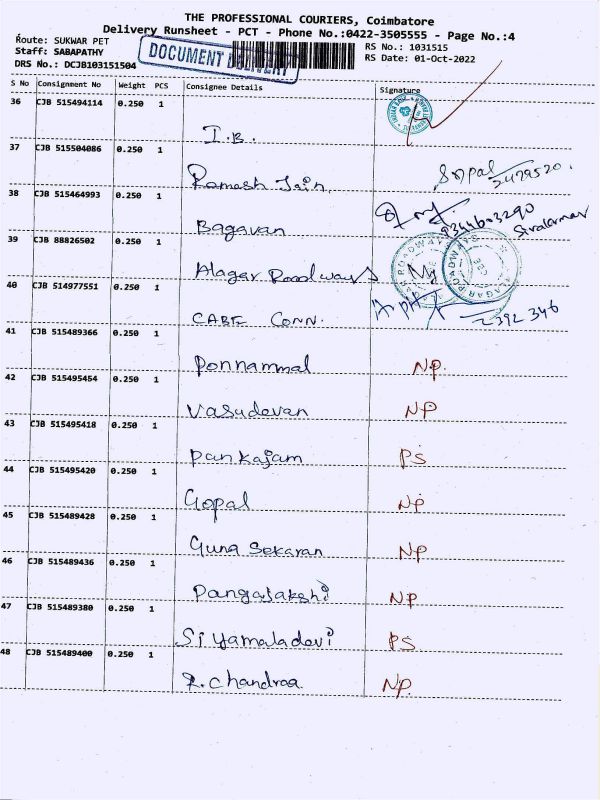 THE PROFESSIONAL COURIERS, Coimbatore
Delivery Runsheet - PCT - Phone No.:0422-3505555 - Page No.:4
Route: SUKWAR PET
Staff: SABAPATHY
DRS No.: DCJB103151504
DOCUMENT DELIVERY
RS No.: 1031515
RS Date: 01-Oct-2022
S No Consignment No Weight PCS Consignee Details Signature
36 CJB 515494114 0.250 1
I.B.
37 CJB 515504086 0.250 1
Ramesh Jain
38 CJB 515464993 0.250 1
Bagavan
39 CJB 88826502 0.250 1
Alagar Roadways
40 CJB 514977551 0.250 1
CABE CONN. 2392 346
41 CJB 515489366 0.250 1
Ponnammal NP.
42 CJB 515495454 0.250 1
Vasudevan NP
43 CJB 515495418 0.250 1
Pankajam PS
44 CJB 515495420 0.250 1
Gopal NP
45 CJB 515489428 0.250 1
Guna Sekaran NP
46 CJB 515489436 0.250 1
Pangajakshi NP
47 CJB 515489380 0.250 1
Siyamaladevi PS
48 CJB 515489400 0.250 1
R.Chandraa NP.